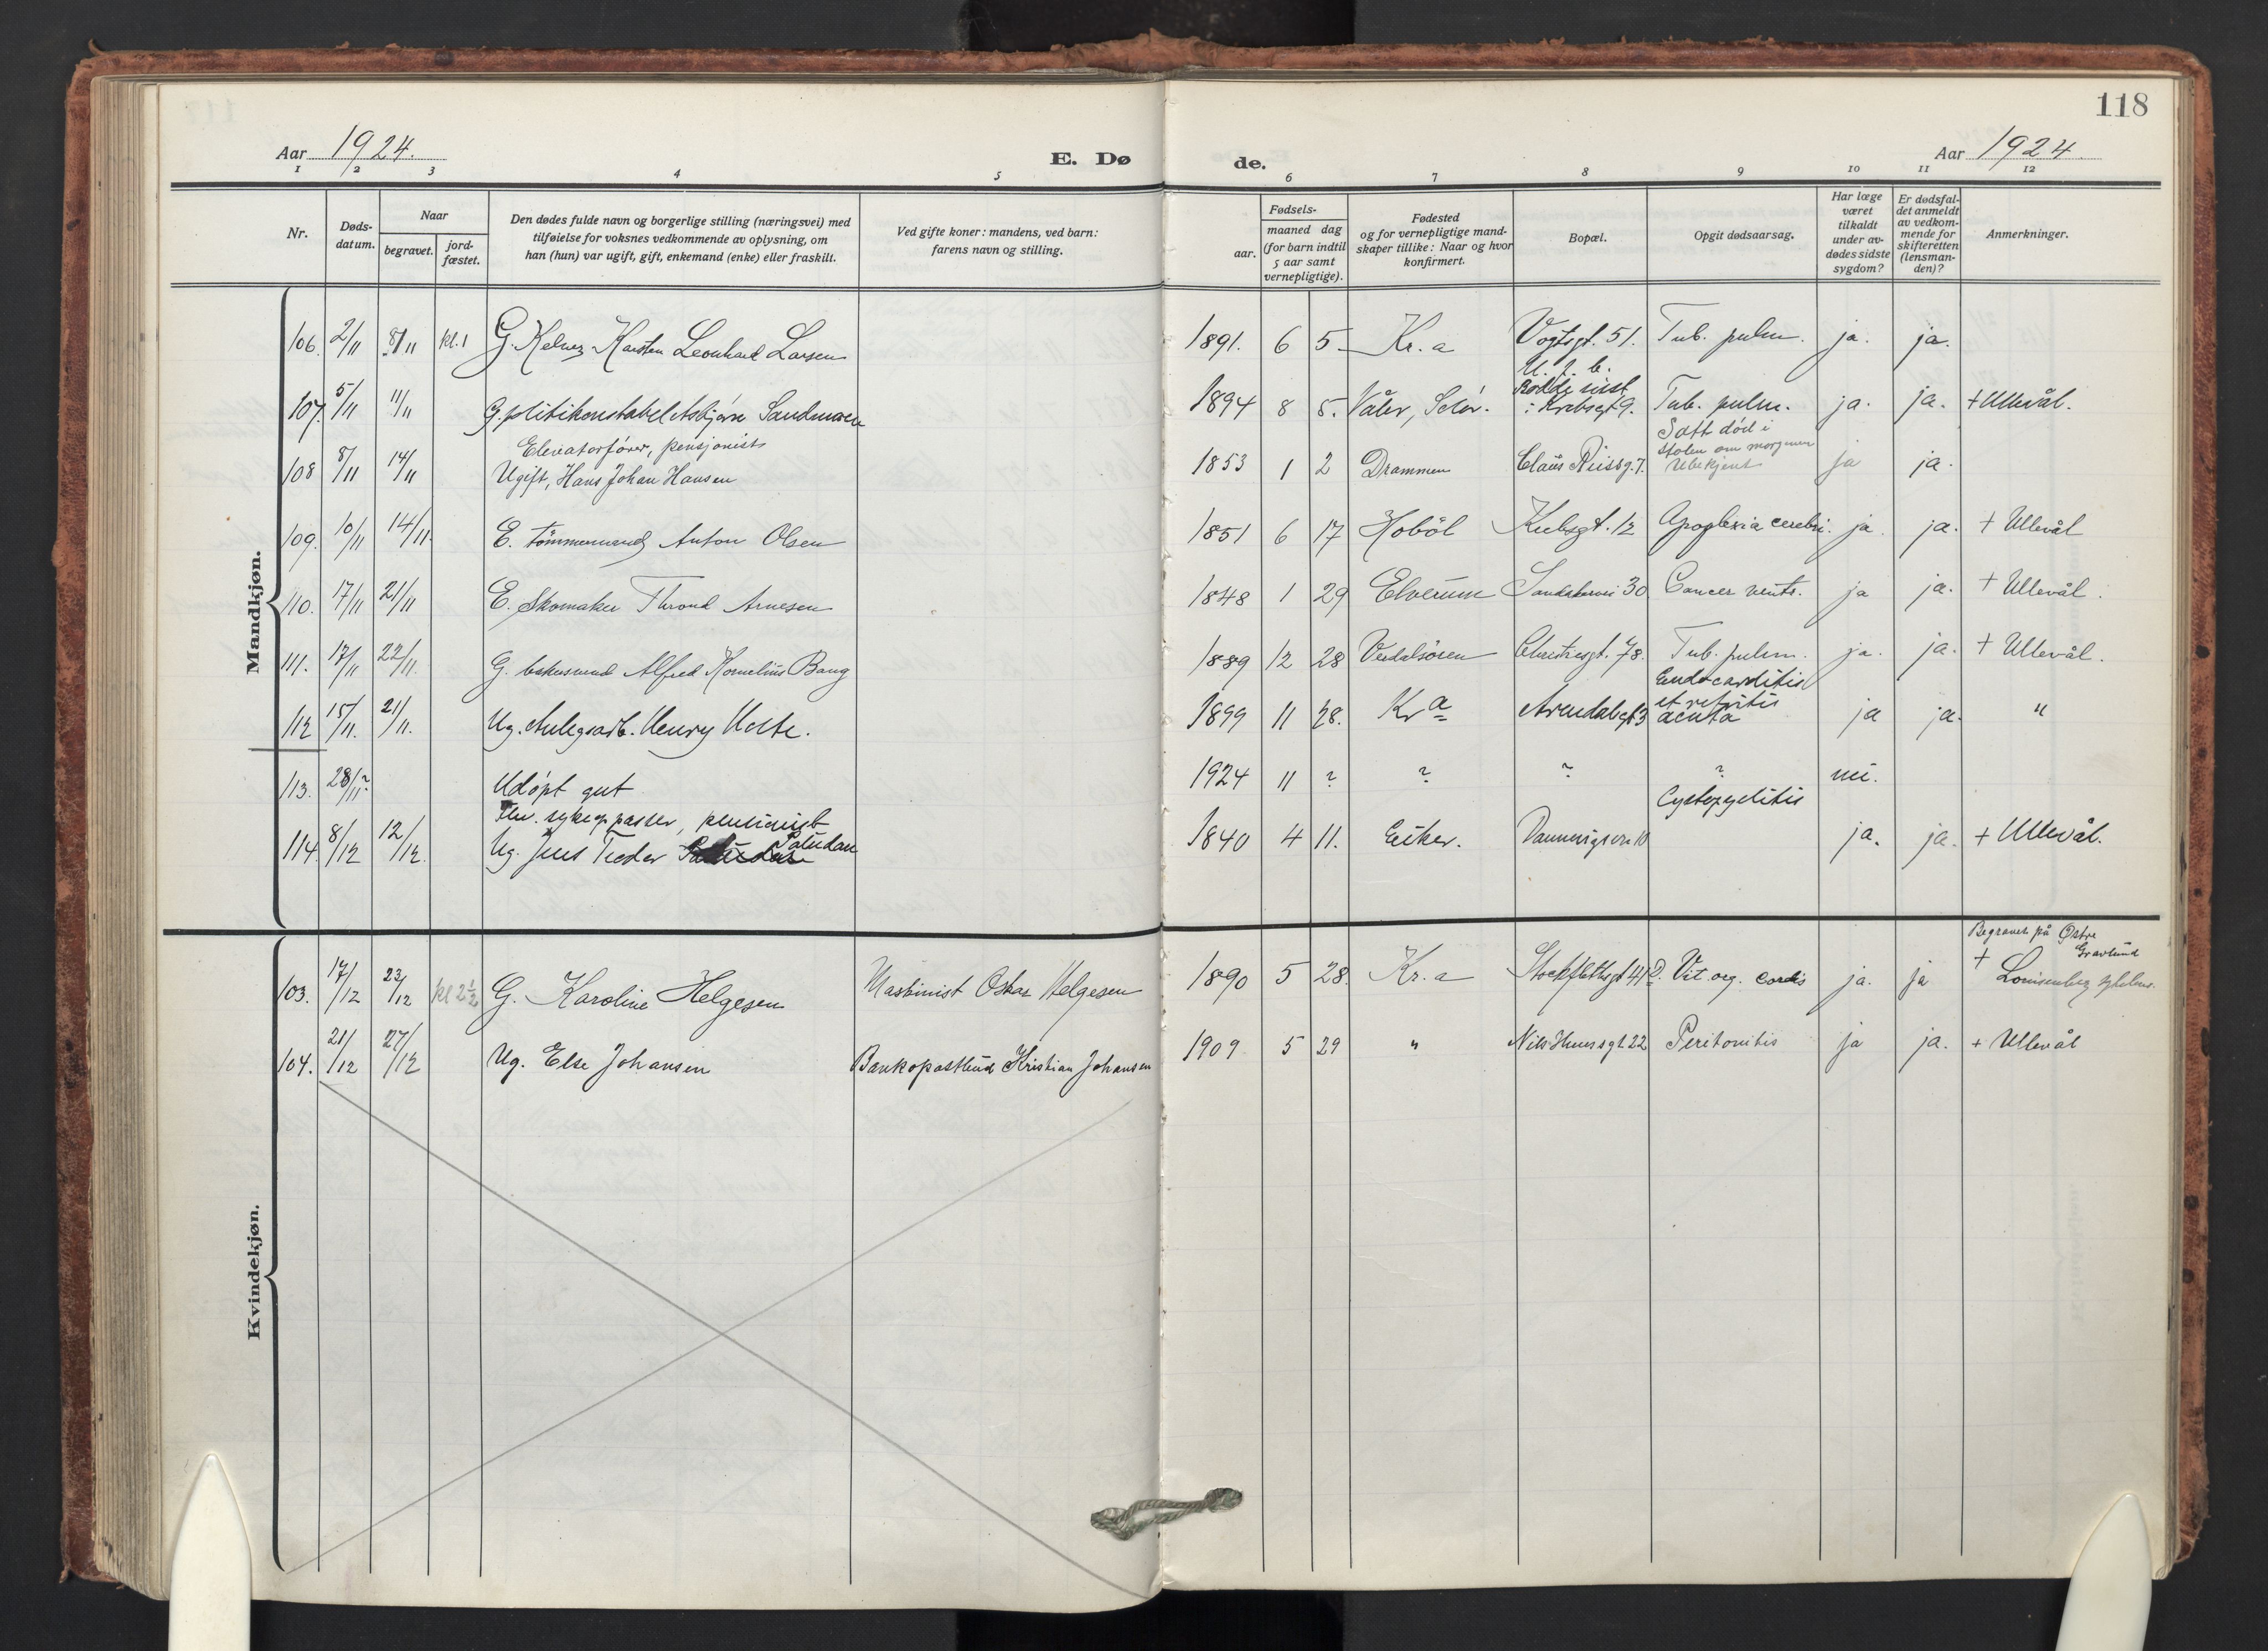 118
Aar 1924.
E. Dø
de.
Aar 1924.
1 2 3 4 5 6 7 8 9 10 11 12
Nr.
Døds-
datum.
Naar
begravet.
jord-
fæstet.
Den dødes fulde navn og borgerlige stilling (næringsvei) med
tilføielse for voksnes vedkommende av oplysning, om
han (hun) var ugift, gift, enkemand (enke) eller fraskilt.
Ved gifte koner: mandens, ved barn:
farens navn og stilling.
Fødsels-
aar.
maaned dag
(for barn indtil
5 aar samt
vernepligtige).
Fødested
og for vernepligtige mand-
skaper tillike: Naar og hvor
konfirmert.
Bopæl.
Opgit dødsaarsag.
Har læge
været
tilkaldt
under av-
dødes sidste
sygdom?
Er dødsfal-
det anmeldt
av vedkom-
mende for
skifteretten
(lensman-
den)?
Anmerkninger.
Mandkjøn.
106. 2/11 8/11 kl. 1 G. Kelner Karsten Leonhard Larsen 1891. 6 5 Kr.a Vogtsgt. 51. Tub. pulm. ja. ja.
107. 5/11 11/11 G. politikonstabel Asbjørn Sandmoen 1894 8 5. Våler, Solør. Tub. pulm. ja. ja. + Ullevål.
Elevatorfører, pensjonist
Satt død i
stolen om morgenen
108 8/11 14/11 Ugift, Hans Johan Hansen 1853 1 2 Drammen Claus Riisg. 7. Ubekjent ja ja.
109. 10/11 14/11. E. tömmermand Anton Olsen 1851 6 17 Hoböl Kubsgt. 12 Apoplexia cerebri. ja. ja. + Ullevål
110. 17/11 21/11 E. Skomaker Thrond Arnesen 1848 1 29 Elverum Sandakervei 30 Cancer ventr. ja ja. + Ullevål.
111. 17/11 22/11. G. Alfred Kornelius Bang 1889 12 28 Verdalsören Christiesgt. 78. Tub. pulm. ja. ja. + Ullevål.
Endocarditis
et
acuta
112 15/11. 21/11. Ug. Anlegsarb. Henry Holte. 1899 11 28. Kra Arendalsgt 3 ja ja. "
113. 28/11? Udøpt gut 1924 11 ? ? ? ? nei.
Fhv. sykepasser, pensionist
Cystopyelitis
Paludan
114. 8/12 12/12. Ug. Jens Teodor 1840 4 11. Eiker. Dannevigsvn 10 ja. ja. + Ullevål.
Kvindekjøn.
Begravet på Østre
Gravlund
103. 17/12 23/12 kl 2 1/2 G. Karoline Helgesen Maskinist Oskar Helgesen 1890 5 28. Kr.a Stockflethsgt 41 D. Vit. org. cordis ja. ja + Lovisenberg sykehus.
104. 21/12 27/12 Ug. Else Johansen Bankopastbud Kristian Johansen 1909 5 29 " Nils Huusgt 22 Peritonitis ja ja. + Ullevål